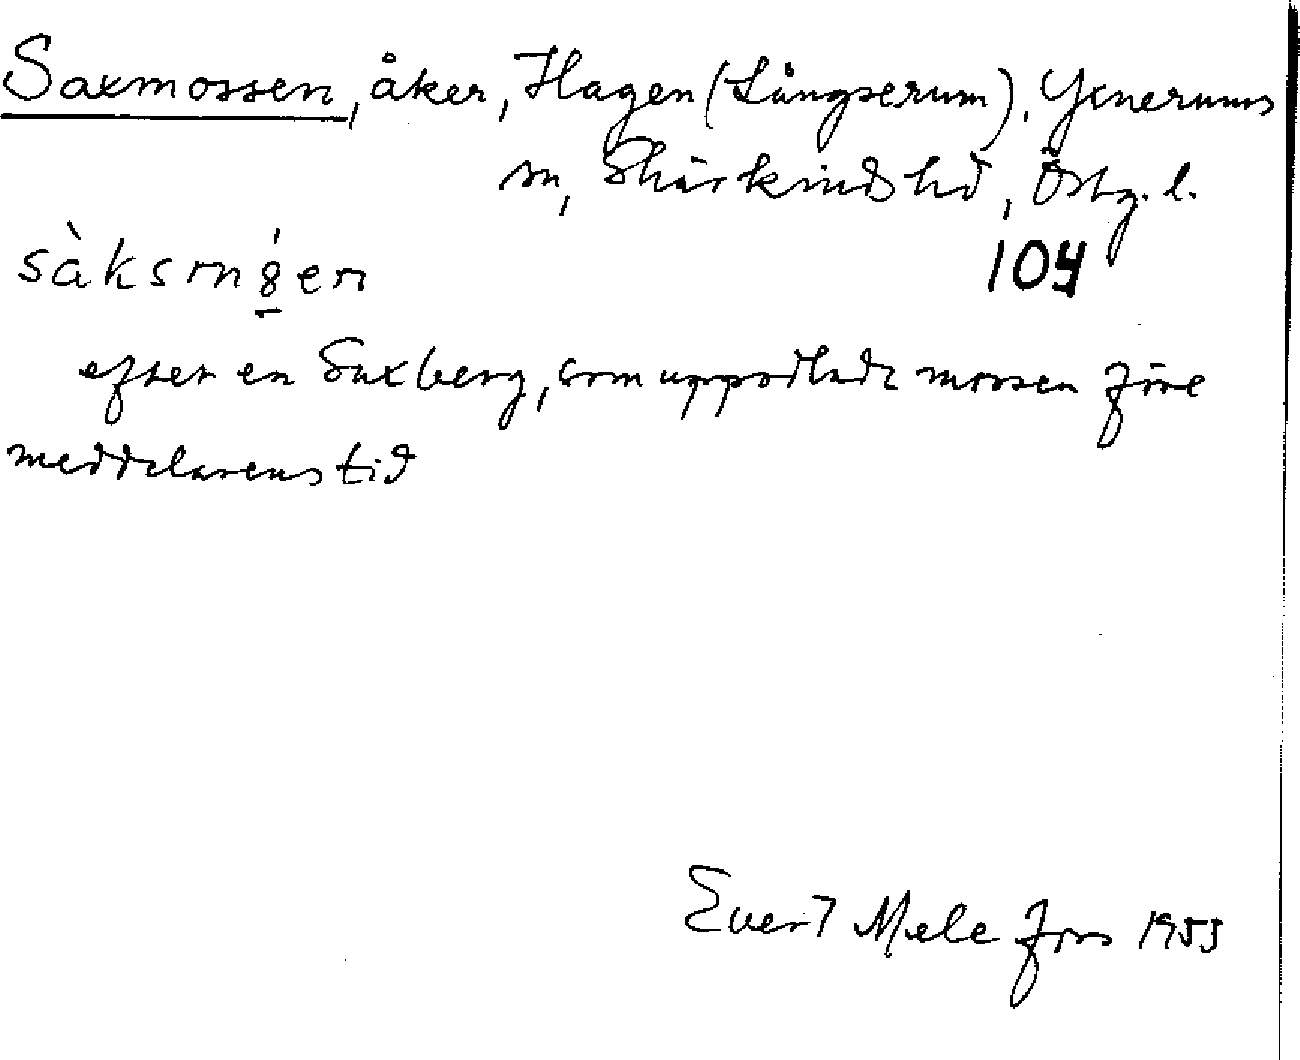 Saxmossen, åker, Hagen (Långserum). Yxnerums
sn, Skärkinds hd, Östg. l.
104
efter en Saxberg, som uppodlade mossen före
meddelarens tid
Evert Melefors 1953